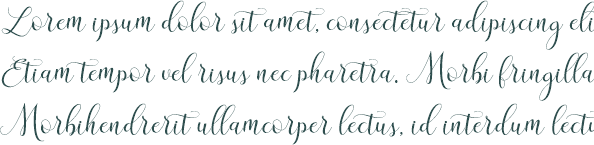 Lorem ipsum dolor sit amet, consectetur adipiscing eli
Etiam tempor vel risus nec pharetra. Morbi fringilla
Morbihendrerit ullamcorper lectus, id interdum lectu